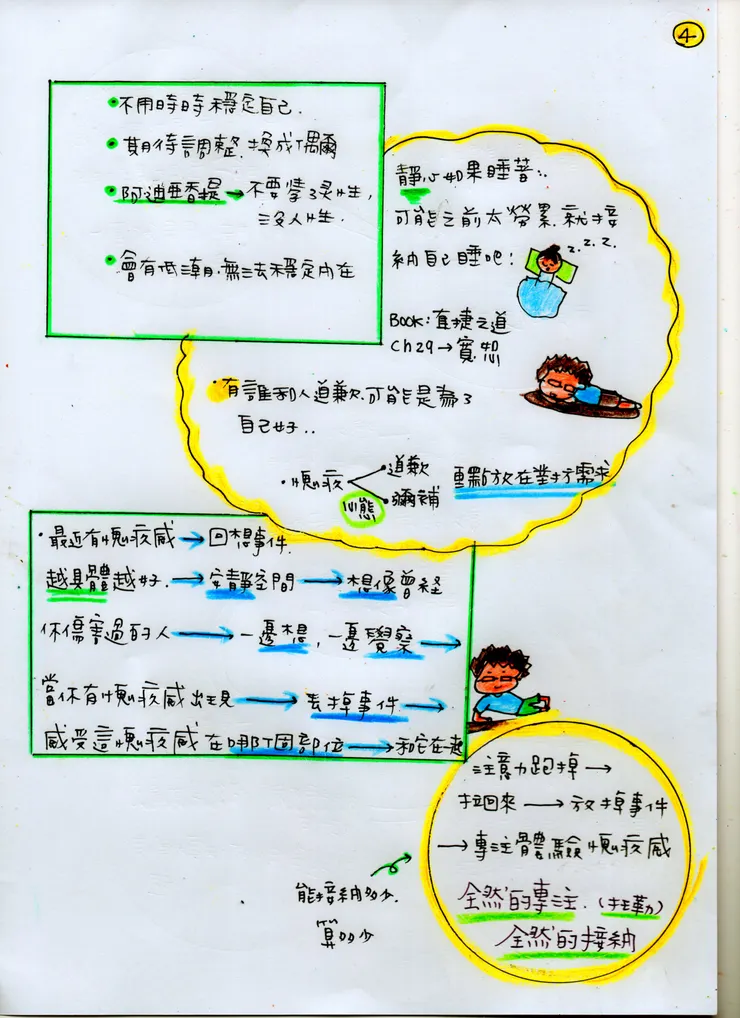 4
•不用時時穩定自己.
•期待調整.換成偶爾
•阿迪亞香提→不要學了靈性,
沒人性.
•會有低潮.無法穩定內在
靜心如果睡著..
可能之前太勞累.就接
納自己睡吧!
z.z.z.
BOOK:直捷之道
Ch29→寬恕
•有誰和人道歉.可能是為了
自己好..
•愧疚
•道歉
•彌補
心態
重點放在對方需求
•最近有愧疚感→回想事件.
越具體越好.→安靜空間→想像曾経
你傷害過的人→一邊想,一邊覺察→
當你有愧疚感出現→丟掉事件→
感受這愧疚感在哪個部位→和它在一起
注意力跑掉→
拉回來→放掉事件
→專注體驗愧疚感
全然的專注.(狂勤)
全然的接納
能接納多少.
算多少